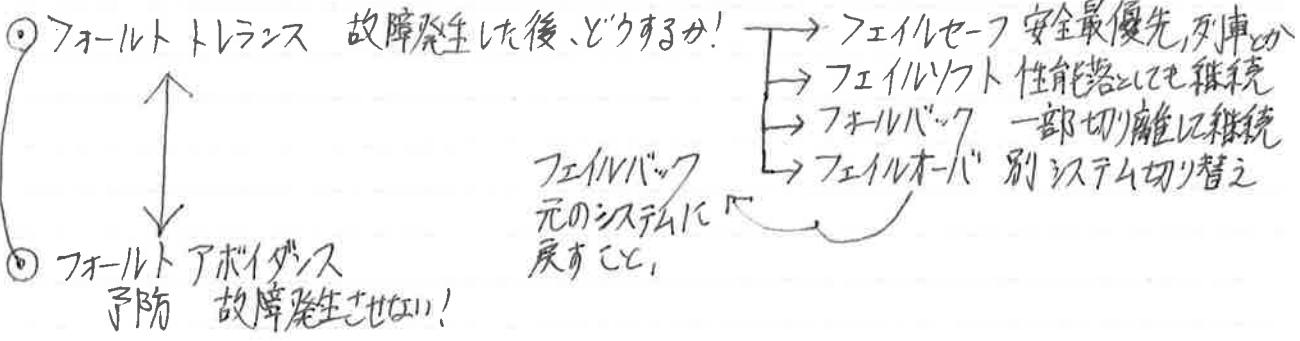 フォールト トレランス 故障発生した後、どうするか!
フェイルセーフ 安全最優先,列車とか
フェイルソフト 性能落としても継続
フォールバック 一部切り離して継続
フェイルオーバ 別システム切り替え
フェイルバック
元のシステムに
戻すこと,
フォールト アボイダンス
予防 故障発生させない!